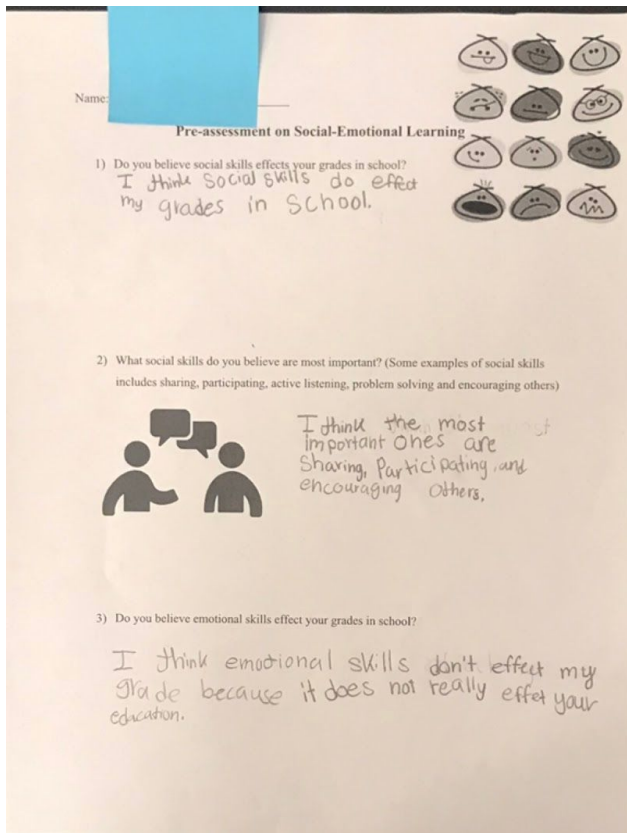 Name:
Pre-assessment on Social-Emotional Learning
1) Do you believe social skills effects your grades in school?
I think social skills do effect
my grades in school.
2) What social skills do you believe are most important? (Some examples of social skills
includes sharing, participating, active listening, problem solving and encouraging others)
I think the most
important ones are
Sharing, Participating, and
encouraging others.
3) Do you believe emotional skills effect your grades in school?
I think emotional skills don't effect my
grade because it does not really effet your
education.